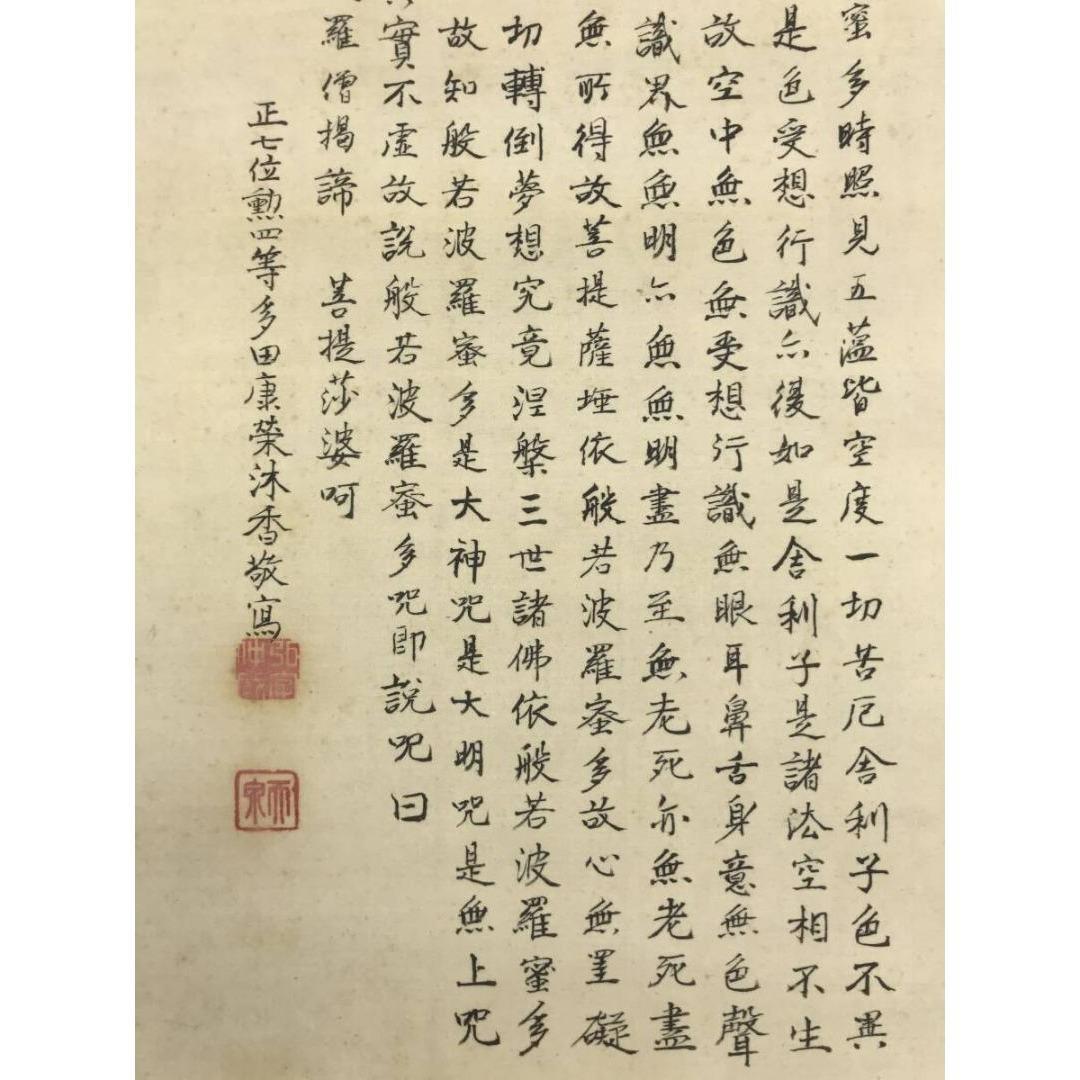 蜜多時照見五蘊皆空度一切苦厄舎利子色不異
是色受想行識亦復如是舎利子是諸法空相不生
故空中無色無受想行識無眼耳鼻舌身意無色聲
識界無無明亦無無明盡乃至無老死亦無老死盡
無所得故菩提薩埵依般若波羅蜜多故心無罣礙
切轉倒夢想究竟涅槃三世諸佛依般若波羅蜜多
故知般若波羅蜜多是大神咒是大明咒是無上咒
實不虛故説般若波羅蜜多咒即説咒曰
羅僧掲諦 菩提莎婆呵
正七位勲四等多田康榮沐香敬寫